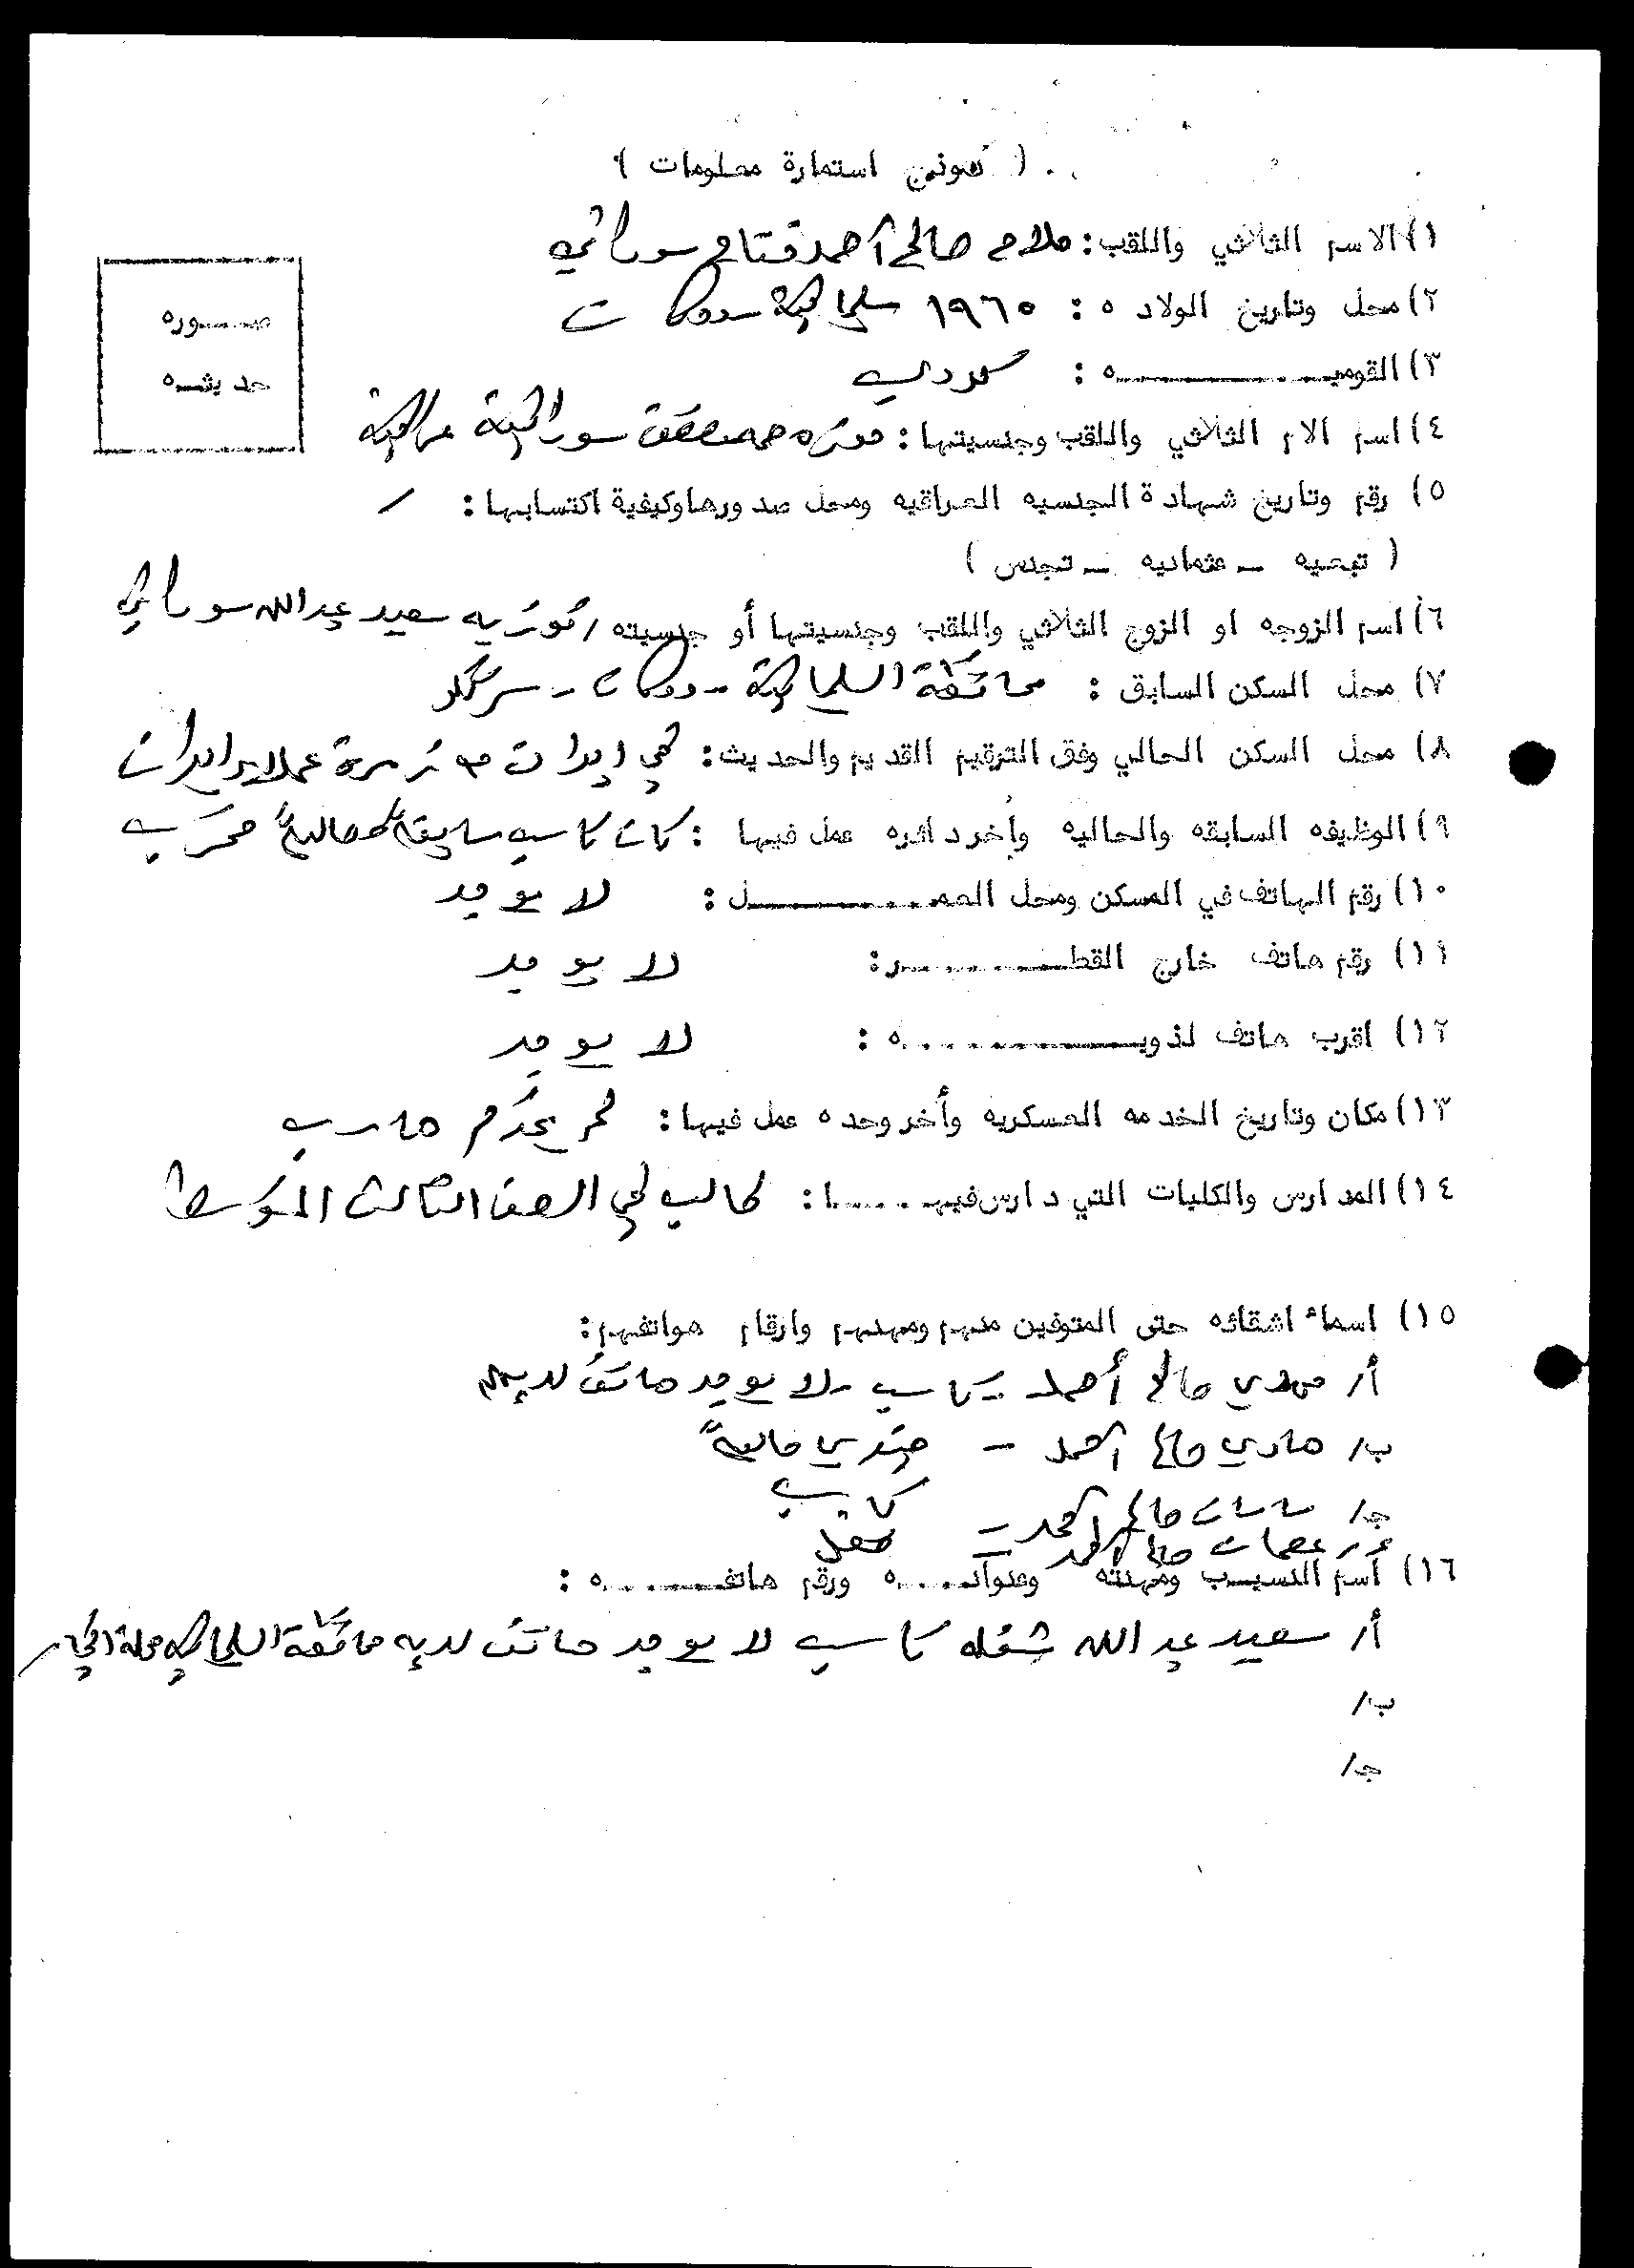 ( نموذج استمارة معلومات )
١) الاسم الثلاثي واللقب : صالح أحمد فتاح سوراني
صـــوره
حديثـه
٢) محل وتاريخ الولاده : ١٩٦٠ سليمانية دوكان
٣) القوميـــــــه : كردي
٤) اسم الام الثلاثي واللقب وجنسيتها : سورانية عراقية
٥) رقم وتاريخ شهادة الجنسيه العراقيه ومحل صدورها وكيفية اكتسابها : /
( تبعيه ـ عثمانيه ـ تجنس )
٦) اسم الزوجه او الزوج الثلاثي واللقب وجنسيتها أو جنسيته / فوزيه سعيد عبدالله سوراني
٧) محل السكن السابق : محافظة السليمانية - دوكان - سرگلو
٨) محل السكن الحالي وفق الترقيم القديم والحديث : في ايران من زمرة عملاء ايران
٩) الوظيفه السابقه والحاليه وأخر دائره عمل فيها : كان كاسب سابقاً وحالياً مخرب
١٠) رقم الهاتف في المسكن ومحل العمــــــل : لا يوجد
١١) رقم هاتف خارج القطــــــر : لا يوجد
١٢) اقرب هاتف لذويـــــــه : لا يوجد
١٣) مكان وتاريخ الخدمه العسكريه وأخر وحده عمل فيها : لم يخدم هارب
١٤) المدارس والكليات التي دارس فيهــــا : طالب في الصف الثالث المتوسط
١٥) اسماء اشقائه حتى المتوفين منهم ومهنهم وارقام هواتفهم :
أ/ مهدي صالح أحمد - كاسب - لا يوجد هاتف لديهم
ب/ هادي صالح أحمد - جندي حالياً
ج/ صالح أحمد - كاسب
د/ صالح أحمد - طفل
١٦) أسم النسيـب ومهنته وعنوانـــه ورقم هاتفـــــه :
أ/ سعيد عبدالله كاسب لا يوجد هاتف لديه محافظة السليمانية محلة
ب/
ج/